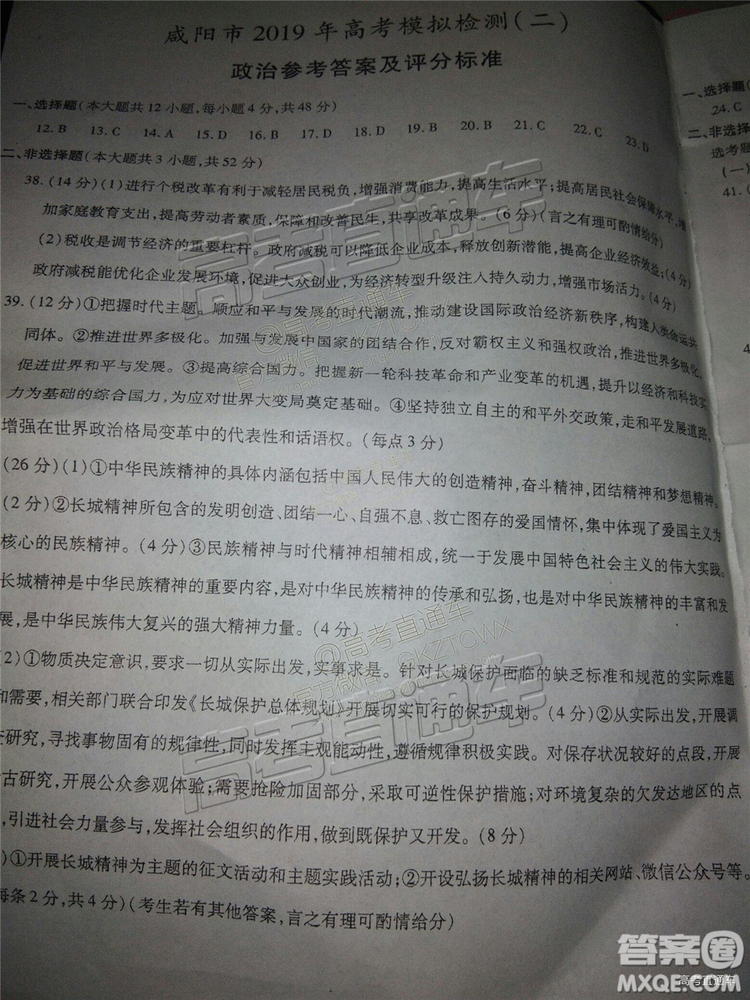 咸阳市2019年高考模拟检测(二)
政治参考答案及评分标准
一、选择题(本大题共12小题,每小题4分,共48分)
12. B 13. C 14. A 15. D 16. B 17. D 18. A 19. D 20. B 21. C 22. C 23. D
二、非选择题(本大题共3小题,共52分)
38. (14分)(1)进行个税改革有利于减轻居民税负,增强消费能力,提高生活水平;提高居民社会保障水平,增
加家庭教育支出,提高劳动者素质,保障和改善民生,共享改革成果。(6分)(言之有理可酌情给分)
(2)税收是调节经济的重要杠杆。政府减税可以降低企业成本,释放创新潜能,提高企业经济效益;(4分)
政府减税能优化企业发展环境,促进大众创业,为经济转型升级注入持久动力,增强市场活力。(4分)
39. (12分)①把握时代主题,顺应和平与发展的时代潮流,推动建设国际政治经济新秩序,构建人类命运共
同体。②推进世界多极化。加强与发展中国家的团结合作,反对霸权主义和强权政治,推进世界多极化,
促进世界和平与发展。③提高综合国力。把握新一轮科技革命和产业变革的机遇,提升以经济和科技实
力为基础的综合国力,为应对世界大变局奠定基础。④坚持独立自主的和平外交政策,走和平发展道路,
增强在世界政治格局变革中的代表性和话语权。(每点3分)
(26分)(1)①中华民族精神的具体内涵包括中国人民伟大的创造精神,奋斗精神,团结精神和梦想精神。
(2分)②长城精神所包含的发明创造、团结一心、自强不息、救亡图存的爱国情怀,集中体现了爱国主义为
核心的民族精神。(4分)③民族精神与时代精神相辅相成,统一于发展中国特色社会主义的伟大实践。
长城精神是中华民族精神的重要内容,是对中华民族精神的传承和弘扬,也是对中华民族精神的丰富和发
展,是中华民族伟大复兴的强大精神力量。(4分)
2)①物质决定意识,要求一切从实际出发,实事求是。针对长城保护面临的缺乏标准和规范的实际难题
和需要,相关部门联合印发《长城保护总体规划》,开展切实可行的保护规划。(4分)②从实际出发,开展调
查研究,寻找事物固有的规律性,同时发挥主观能动性,遵循规律积极实践。对保存状况较好的点段,开展
古研究,开展公众参观体验;需要抢险加固部分,采取可逆性保护措施;对环境复杂的欠发达地区的点
,引进社会力量参与,发挥社会组织的作用,做到既保护又开发。(8分)
)①开展长城精神为主题的征文活动和主题实践活动;②开设弘扬长城精神的相关网站、微信公众号等。
每条2分,共4分)(考生若有其他答案,言之有理可酌情给分)
一、选择题
24. C
二、非选择题
选考题
(一)
41.
高考直通车
@高考直通车
高考直通车
答案圈
MXQE.COM
高考直通车